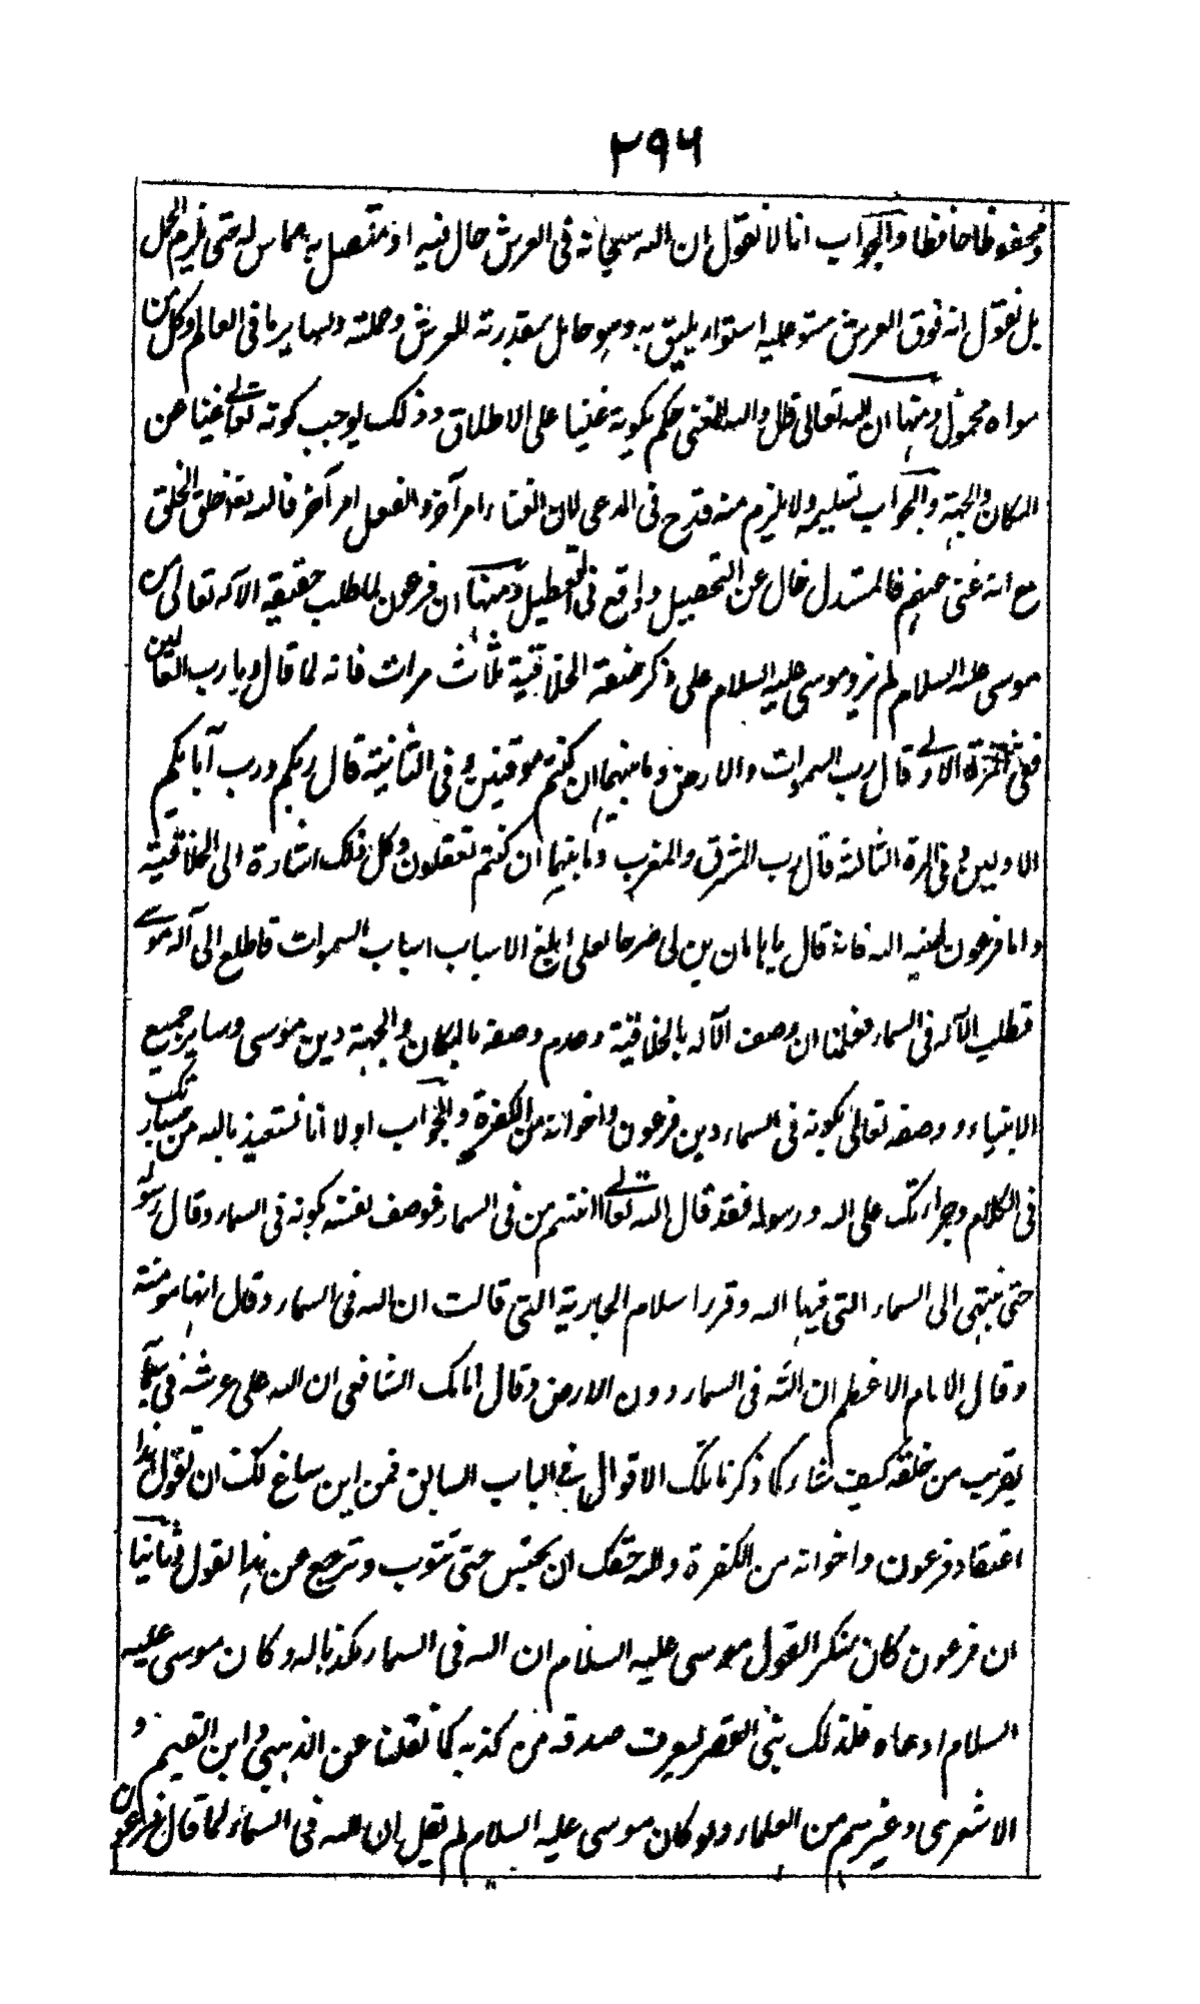 ٢٩٦
ومحفوظا حافظا والجواب انا لا نقول ان الله سبحانه فى العرش حال فيه او متصل به مماس له حتى يلزم الحمل
بل نقول انه فوق العرش مستو عليه استواء يليق به وهو حامل بقدرته للعرش وحملته ولسايرما فى العالم وكل من
سواه محمول ومنها ان الله تعالى قال والله الغنى حكم بكونه غنيا على الاطلاق وذلك يوجب كونه تعالى غنيا عن
المكان والجهة والجواب تسليمه ولا يلزم منه قدح فى المدعى لان الغناء امر آخر والفعل امر آخر فالله تعالى خلق الخلق
مع انه غنى عنهم فالمستدل خال عن التحصيل واقع فى التعطيل ومنها ان فرعون لما طلب حقيقة الآله تعالى من
موسى عليه السلام لم يزد موسى عليه السلام على ذكر صفة الخلاقية ثلاث مرات فانه لما قال وما رب العالمين
ففى المرة الاولى قال رب السموات والارض وما بينهما ان كنتم موقنين وفى الثانية قال ربكم ورب آبايكم
الاولين وفى المرة الثالثة قال رب المشرق والمغرب وما بينهما ان كنتم تعقلون وكل ذلك اشارة الى الخلاقية
واما فرعون لعنه الله فانه قال يا هامان ابن لى صرحا لعلى ابلغ الاسباب اسباب السموات فاطلع الى آله موسى
فطلب الآله فى السماء فعلمنا ان وصف الآله بالخلاقية وعدم وصفه بالمكان والجهة دين موسى وساير جميع
الانبياء ووصفه تعالى بكونه فى السماء دين فرعون واخوانه من الكفرة والجواب اولا انا نستعيذ بالله من جسارتك
فى الكلام وجراءتك على الله ورسوله فقد قال الله تعالى اامنتم من فى السماء فوصف نفسه كونه فى السماء وقال رسوله
حتى ينتهى الى السماء التى فيها الله وقرر اسلام الجارية التى قالت ان الله فى السماء وقال انها مومنة
وقال الامام الاعظم ان الله فى السماء دون الارض وقال امامك الشافعى ان الله على عرشه فى سمائه
يقرب من خلقه كيف شاء كما ذكرنا تلك الاقوال فى الباب السابق فمن اين ساغ لك ان تقول هذا
اعتقاد فرعون واخوانه من الكفرة والله حقك ان تحبس حتى تتوب وترجع عن هذا القول وثانيا
ان فرعون كان منكر القول موسى عليه السلام ان الله فى السماء مكذبا له وكان موسى عليه
السلام ادعاه فلذلك بنى القصر ليعرف صدقه من كذبه كما نقلنا عن الذهبى وابن القيم و
الاشعرى وغيرهم من العلماء ولو كان موسى عليه السلام لم يقل ان الله فى السماء لما قال فرعون